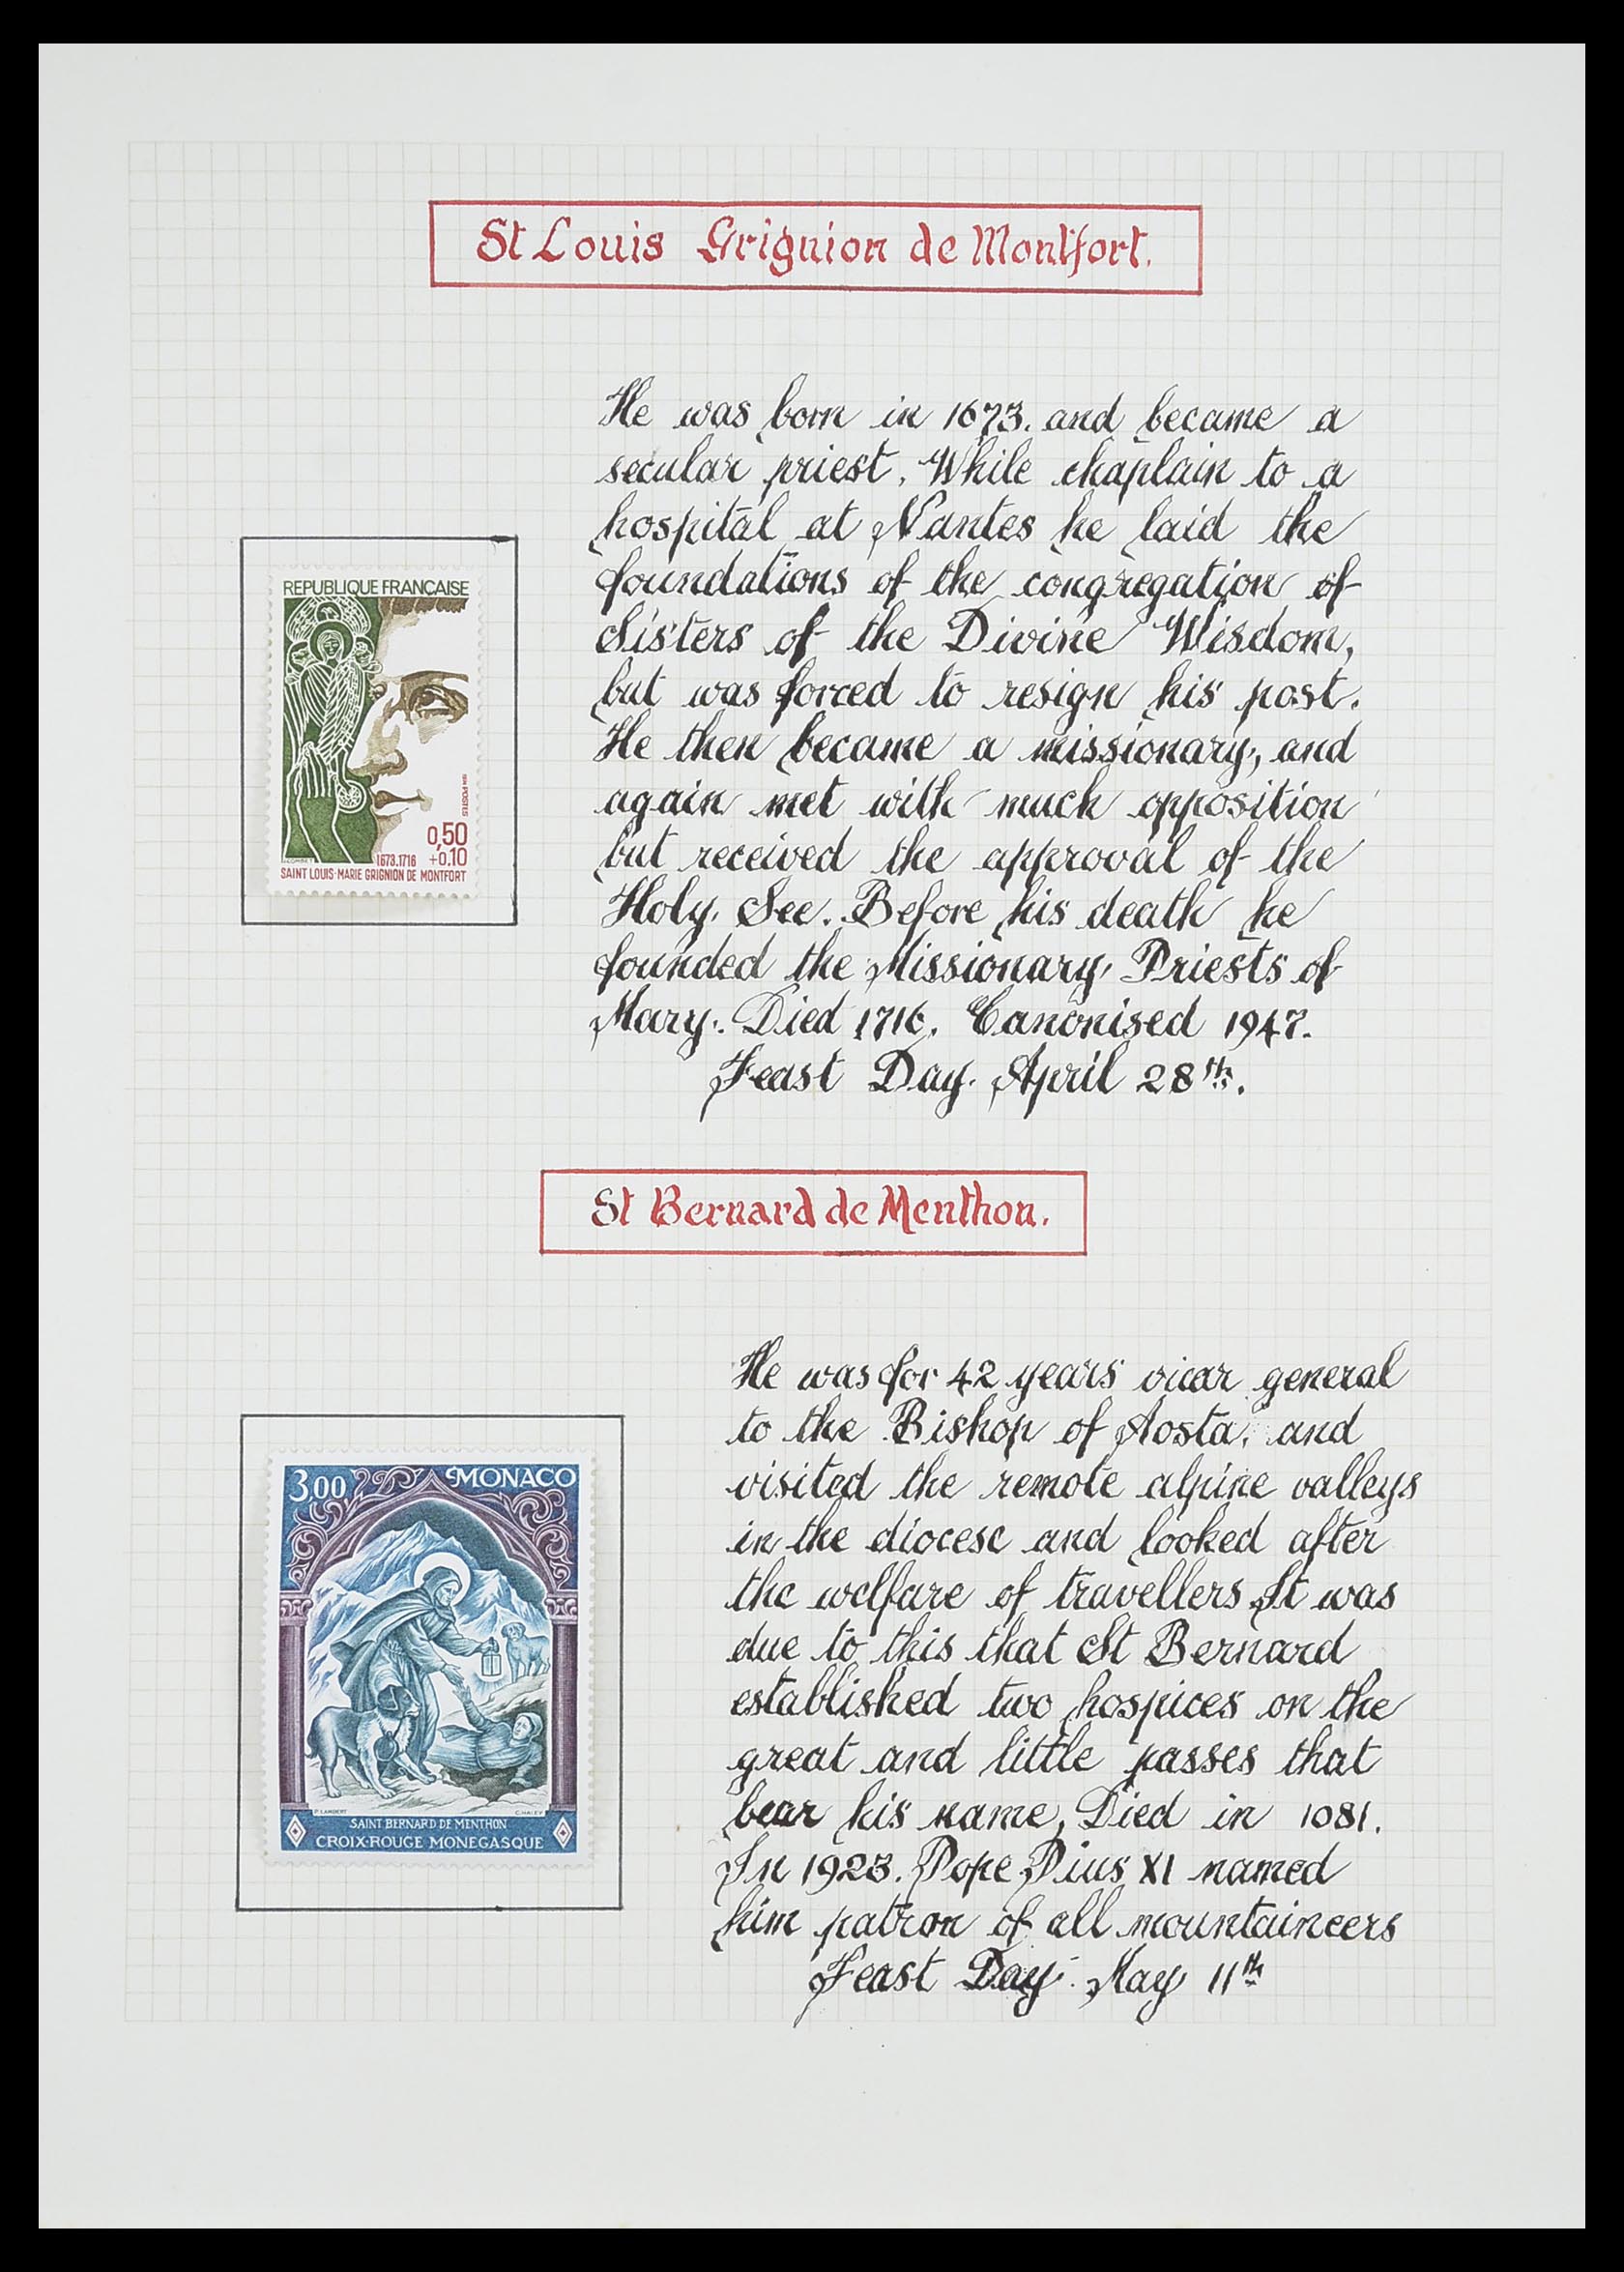 St Louis Grignion de Montfort.
He was born in 1673. and became a
secular priest. While chaplain to a
hospital at Nantes he laid the
foundations of the congregation of
Sisters of the Divine Wisdom,
but was forced to resign his post.
He then became a missionary, and
again met with much opposition
but received the approval of the
Holy See. Before his death he
founded the Missionary Priests of
Mary. Died 1716. Canonised 1947.
Feast Day. April 28th.
REPUBLIQUE FRANÇAISE
1974 POSTES
0,50
1673.1716 +0,10
SAINT LOUIS-MARIE GRIGNION DE MONTFORT
St Bernard de Menthon.
He was for 42 years vicar general
to the Bishop of Aosta, and
visited the remote alpine valleys
in the diocese and looked after
the welfare of travellers It was
due to this that St Bernard
established two hospices on the
great and little passes that
bear his name, Died in 1081.
In 1923. Pope Pius XI named
him patron of all mountaineers
Feast Day. May 11th
3,00 MONACO
P. LAMBERT C. HALEY
SAINT BERNARD DE MENTHON
CROIX-ROUGE MONEGASQUE